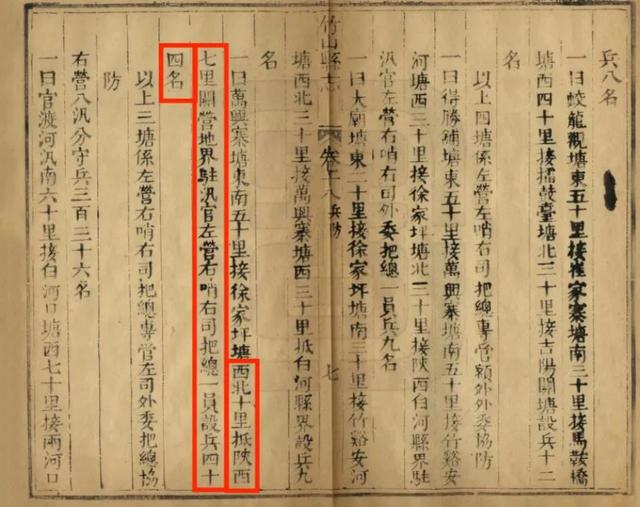 兵八名
一曰蛟龍觀塘東五十里接崔家寨塘南三十里接馬鞍橋
塘西四十里接擂鼓臺塘北三十里接吉陽關塘設兵十二
名
以上四塘係左營左哨右司把總專管額外外委協防
一曰得勝鋪塘東五十里接萬興寨塘南五十里接竹谿安
河塘西三十里接徐家坪塘北三十里接陝西白河縣界駐
汛官左營右哨右司外委把總一員兵九名
一曰大廟塘東二十里接徐家坪塘南三十里接竹谿安河
塘西北三十里接萬興寨塘西三十里抵白河縣界設兵九
名
竹山縣志
卷十八
兵防
七
一曰萬興寨塘東南五十里接徐家坪塘西北十里抵陝西
七里關營地界駐汛官左營右哨右司把總一員設兵四十
四名
以上三塘係左營右哨右司把總專管左司外委把總協
防
右營八汛分守兵三百三十六名
一曰官渡河汛南六十里接白河口塘西七十里接兩河口